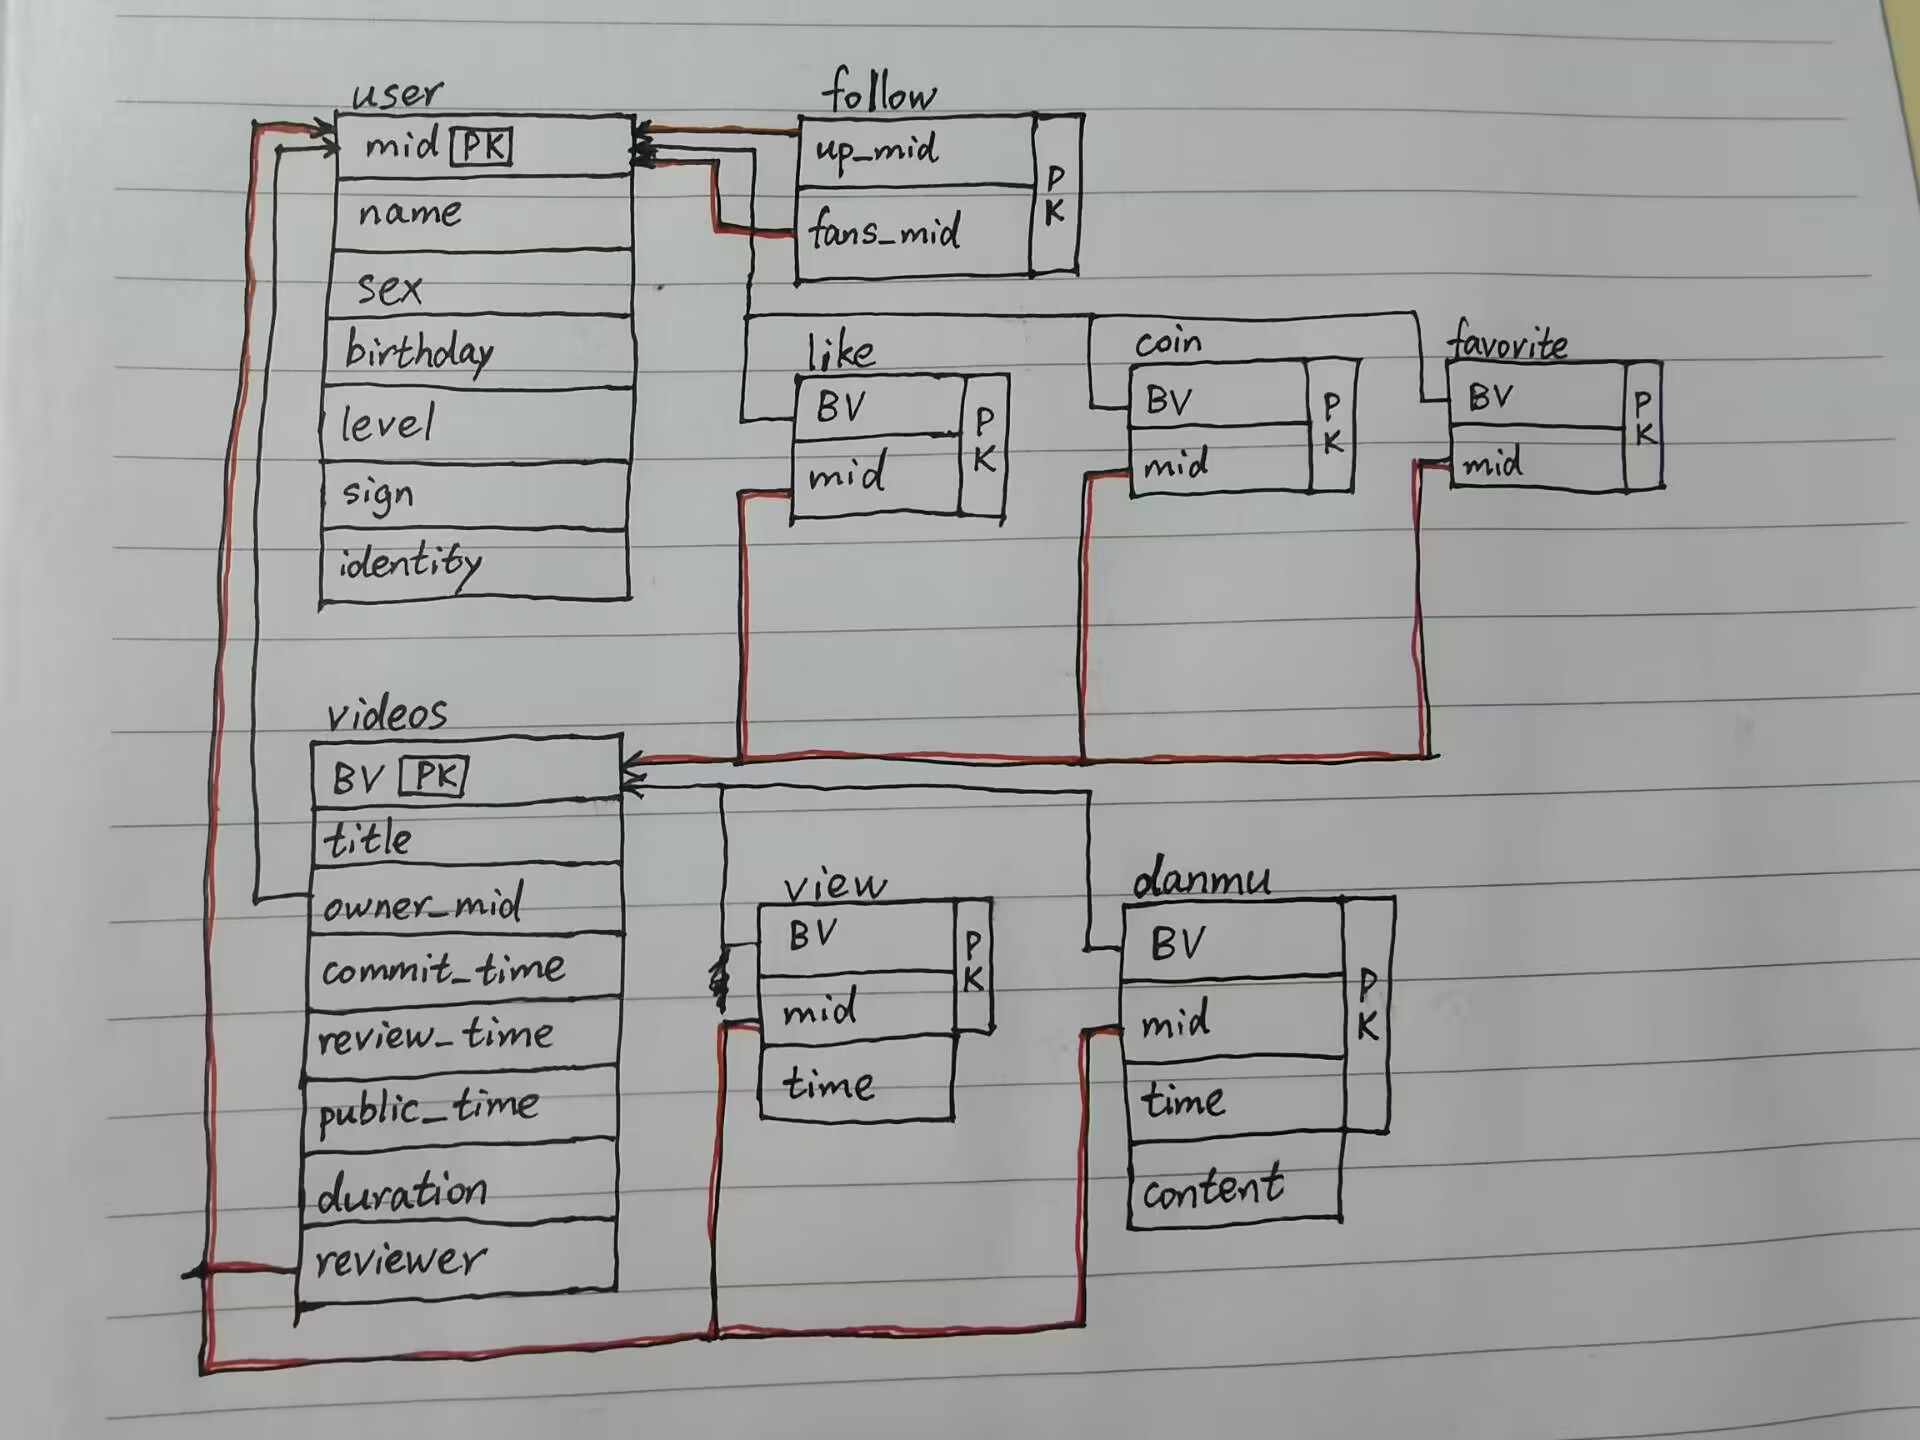 user
mid PK
name
sex
birthday
level
sign
identity
follow
up_mid
fans_mid
PK
like
BV
mid
PK
coin
BV
mid
PK
favorite
BV
mid
PK
videos
BV PK
title
owner_mid
commit_time
review_time
public_time
duration
reviewer
view
BV
mid
time
PK
danmu
BV
mid
time
content
PK